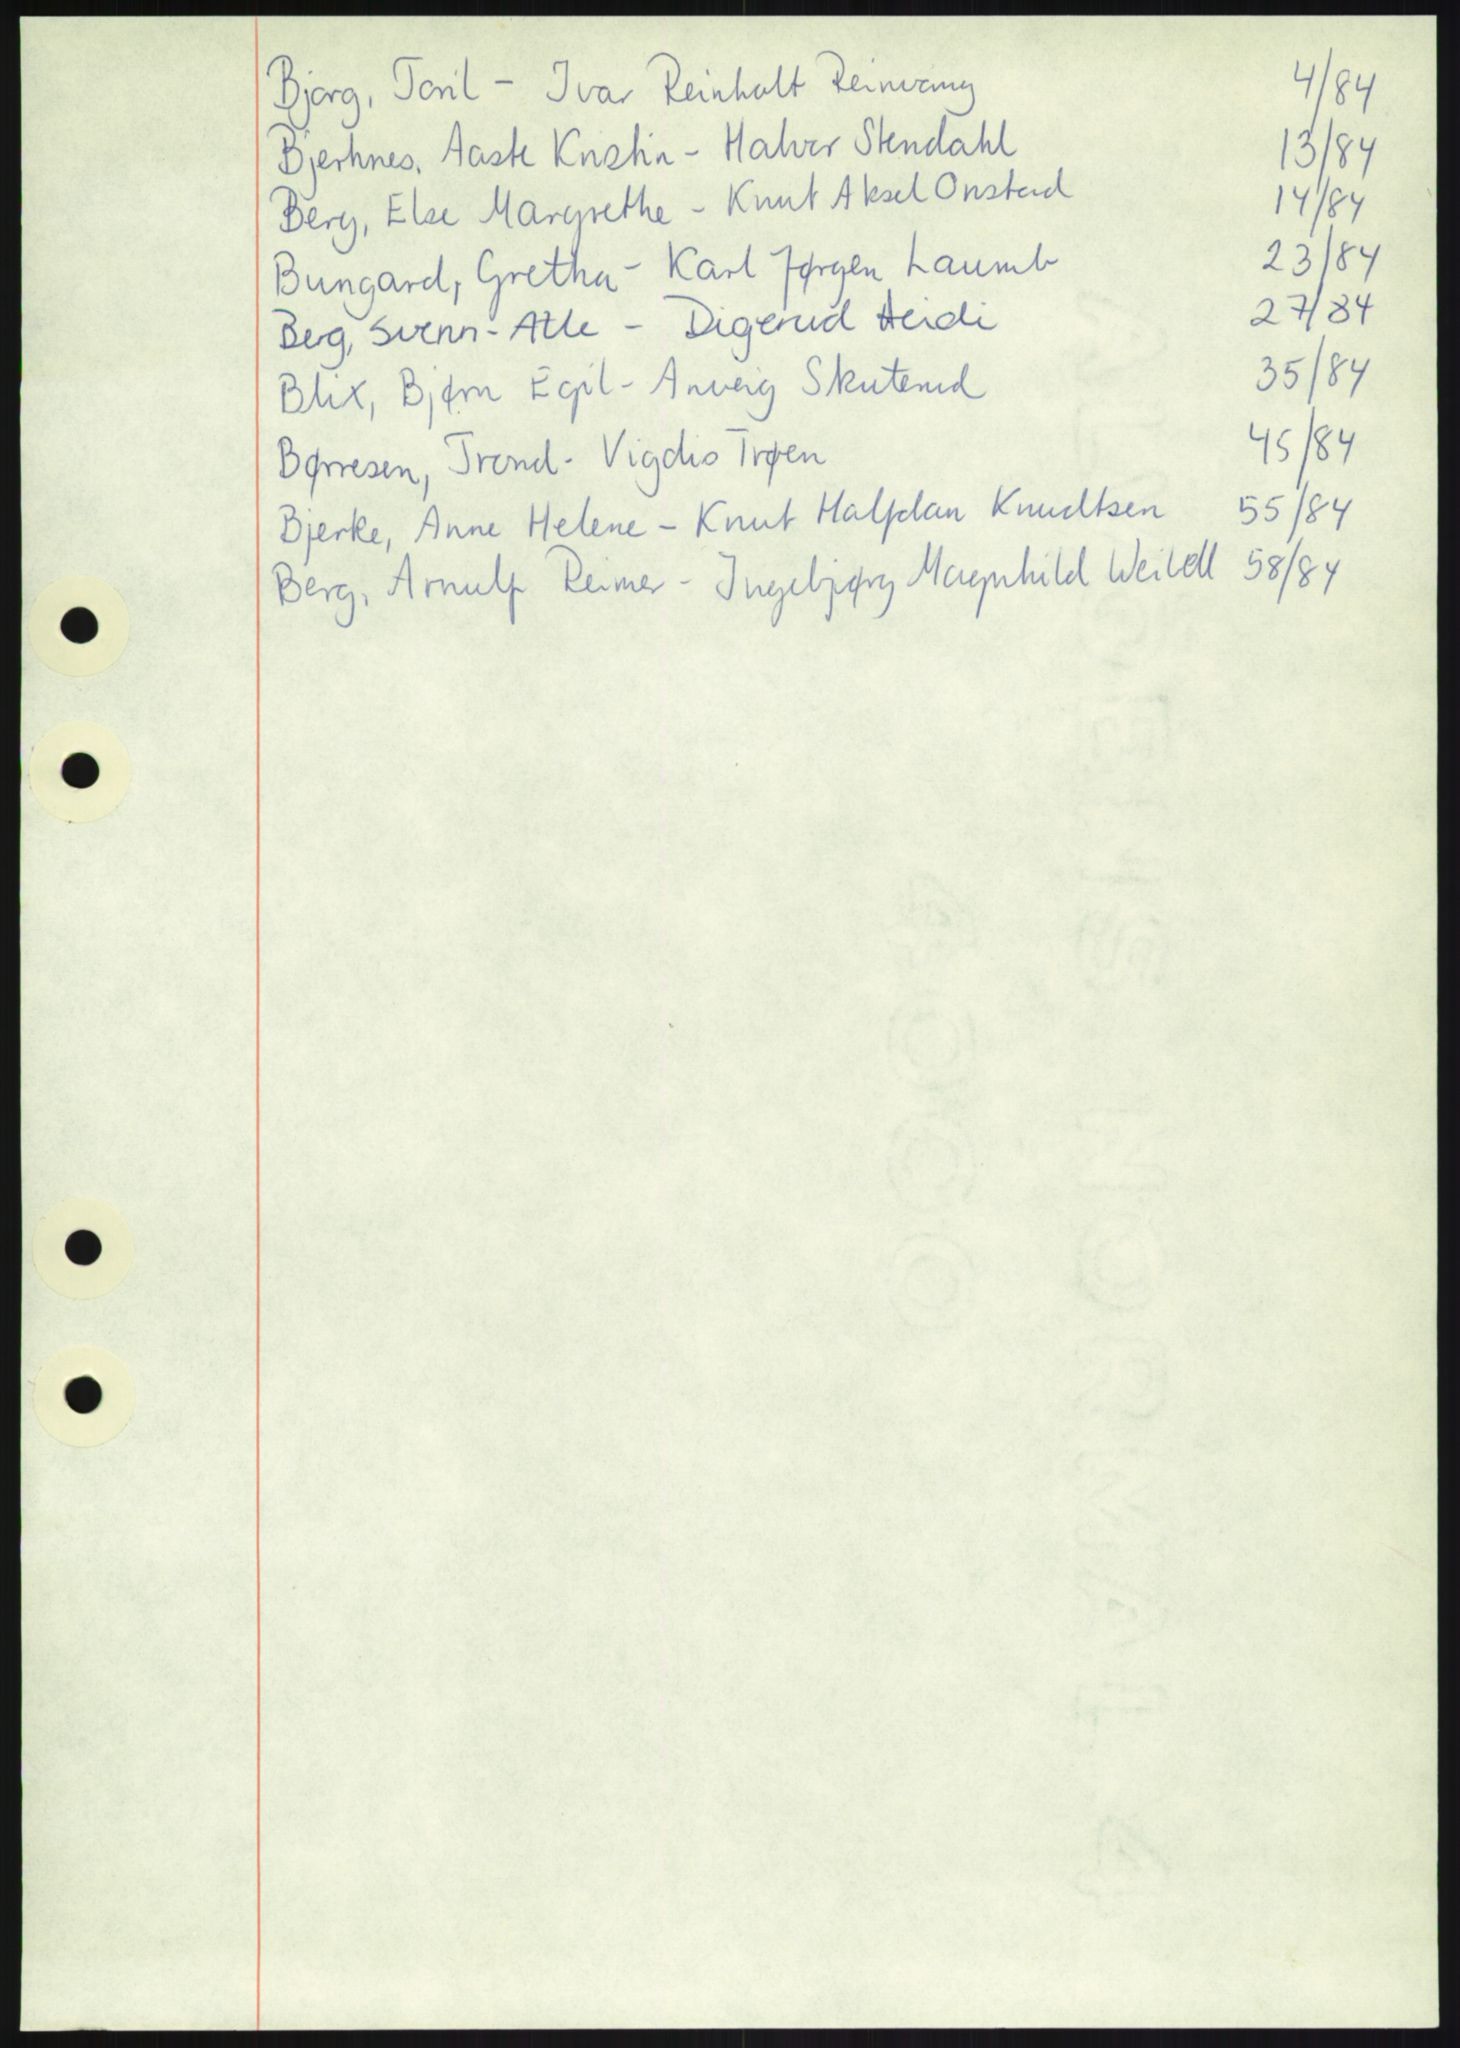 Bjørg, Toril - Ivar Reinholt Reinvang 4/84
Bjerknes, Aaste Kristin - Halvor Stendahl 13/84
Berg, Else Margrethe - Knut Aksel Onstad 14/84
Bungard, Gretha - Karl Jørgen Laumb 23/84
Berg, Svenn-Atle - Digerud Heidi 27/84
Blix, Bjørn Egil - Anveig Skuterud 35/84
Børresen, Trond - Vigdis Trøen 45/84
Bjerke, Anne Helene - Knut Halfdan Knudtsen 55/84
Berg, Arnulf Reimer - Ingebjørg Magnhild 58/84